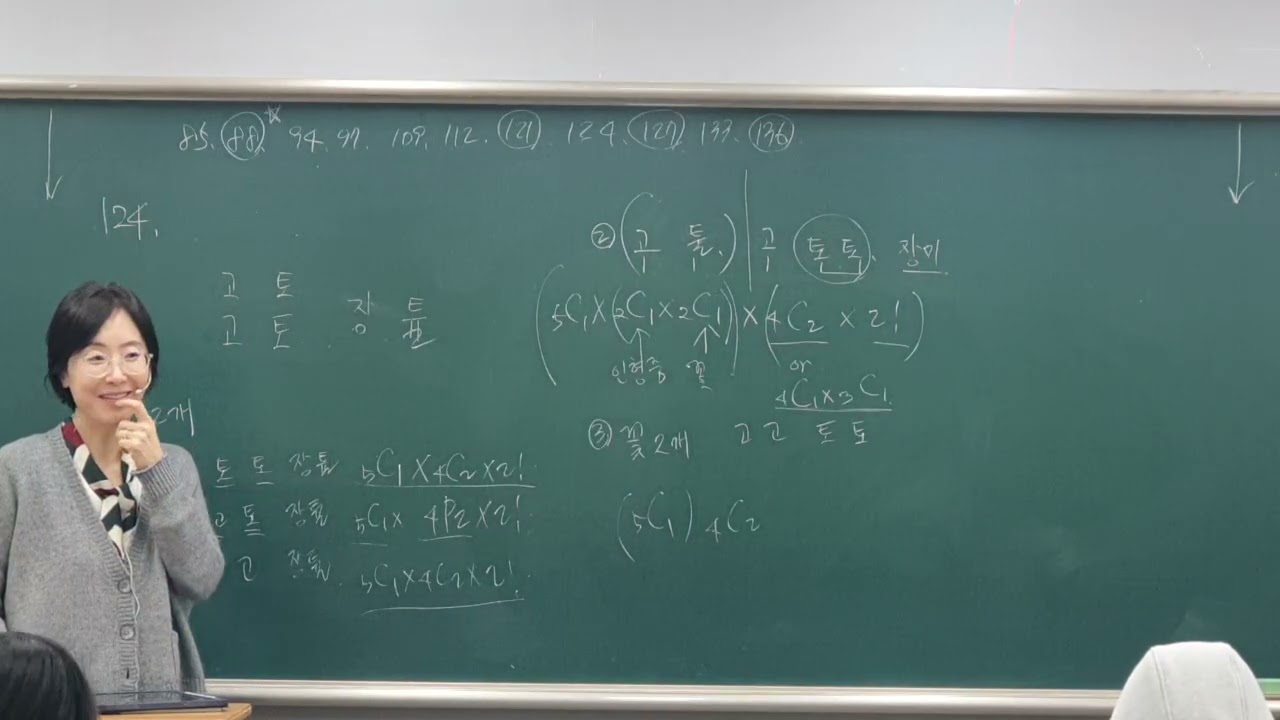 85. 88. 94. 97. 109. 112. 121. 124. 127. 133. 136.
124.
고 토
고 토 장 튤
2개
토 토 장튤 ₅C₁×₄C₂×2!
고 토 장튤 ₅C₁× ₄P₂×2!
고 장튤 ₅C₁×₄C₂×2!
② (고 튤.) 고 토 토. 장미
(₅C₁×(₂C₁×₂C₁))×(₄C₂ × 2!)
인형중 꽃
or
₄C₁×₃C₁.
③ 꽃2개 고고 토토
(₅C₁) ₄C₂